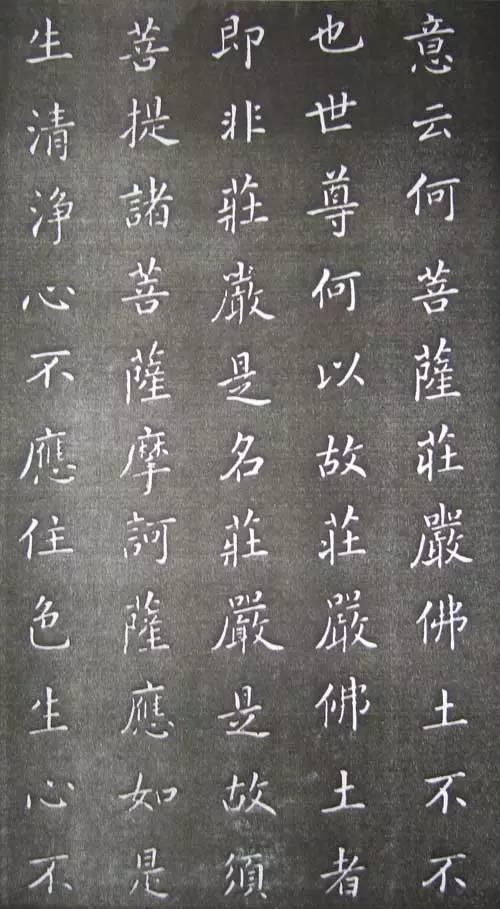 意云何菩薩莊嚴佛土不不
也世尊何以故莊嚴佛土者
即非莊嚴是名莊嚴是故須
菩提諸菩薩摩訶薩應如是
生清淨心不應住色生心不